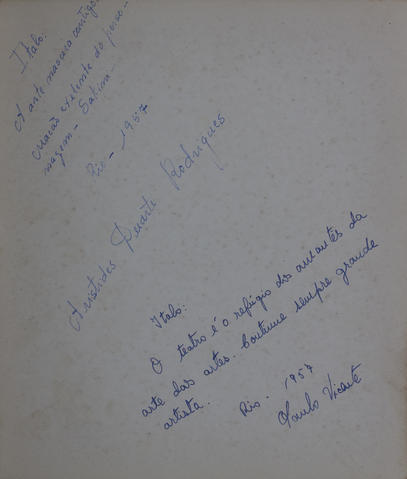 Italo:
A arte nasceu contigo.
criação existente do perso-
nagem - Sakini -
Rio - 1957
Aristides Duarte Rodrigues
Italo:
O teatro é o refúgio dos amantes da
arte das artes. Continue sempre grande
artista.
Rio - 1957
Paulo Vicente